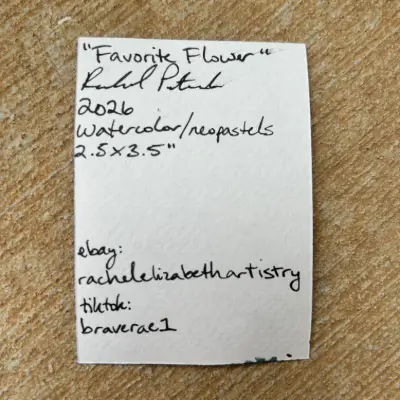 "Favorite Flower"
Rachel
2026
watercolor/neopastels
2.5x3.5"
ebay:
rachelelizabethartistry
tiktok:
braverae1